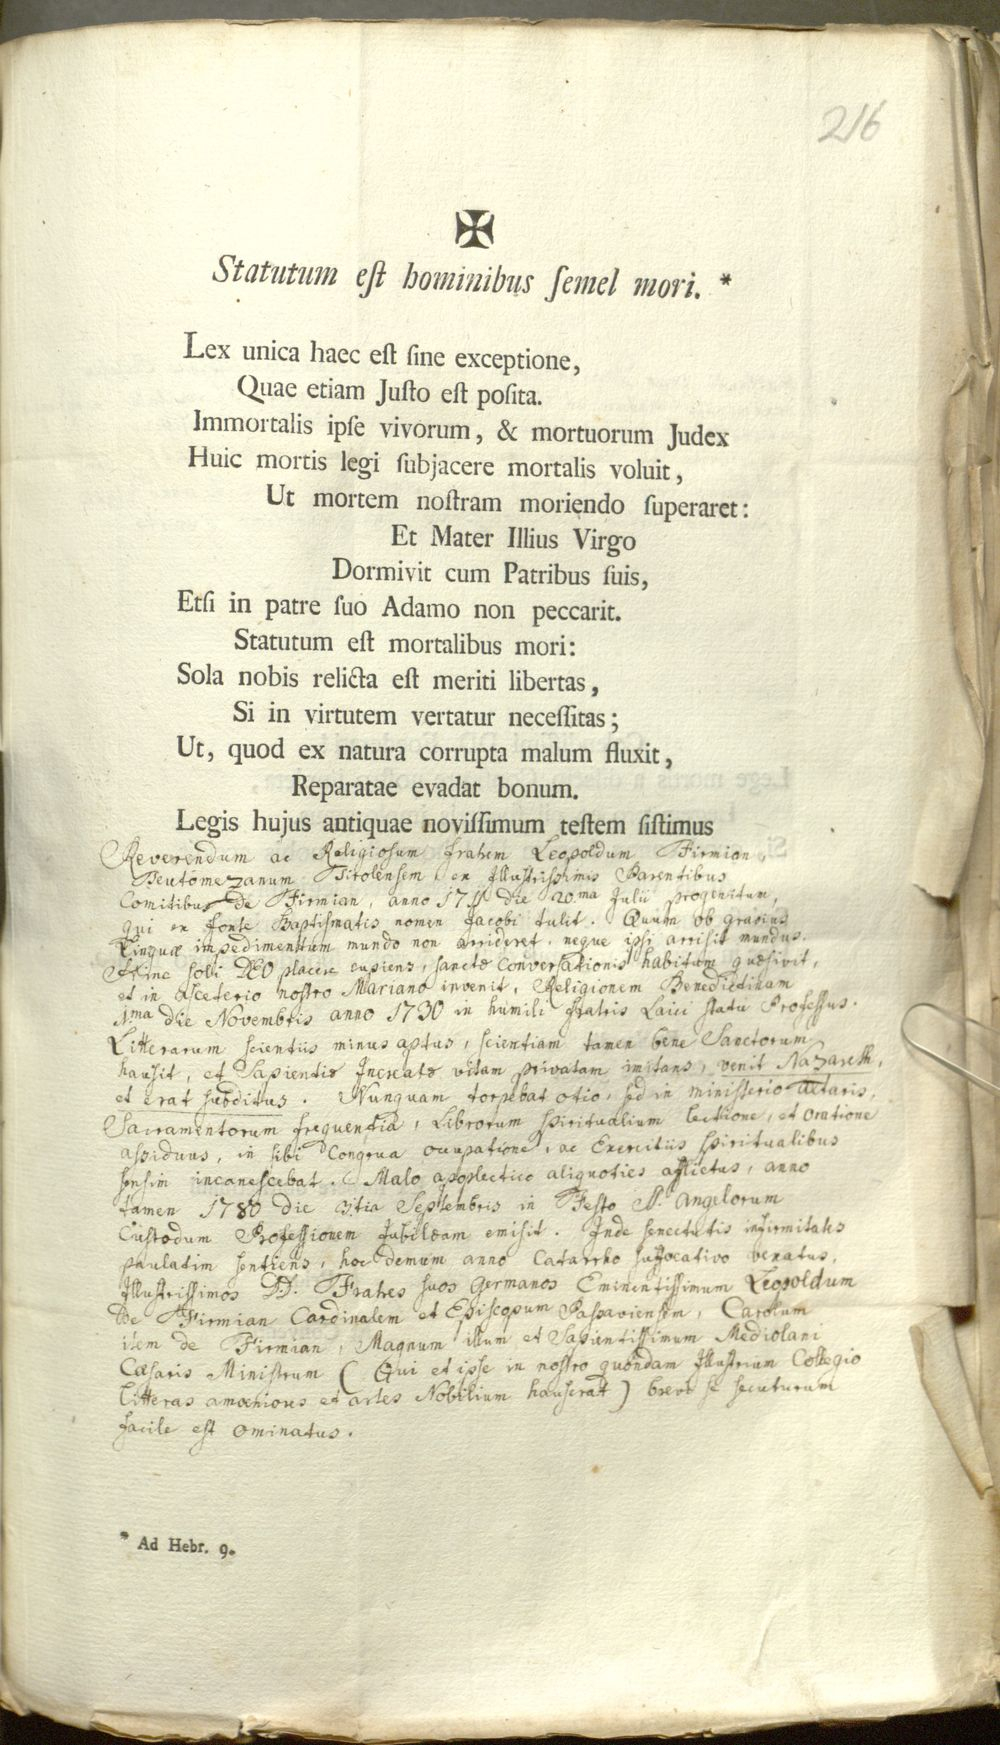 216
✠
Statutum eſt hominibus ſemel mori. *
Lex unica haec eſt ſine exceptione,
Quae etiam Juſto eſt poſita.
Immortalis ipſe vivorum, & mortuorum Judex
Huic mortis legi ſubjacere mortalis voluit,
Ut mortem noſtram moriendo ſuperaret:
Et Mater Illius Virgo
Dormivit cum Patribus ſuis,
Etſi in patre ſuo Adamo non peccarit.
Statutum eſt mortalibus mori:
Sola nobis relicta eſt meriti libertas,
Si in virtutem vertatur neceſſitas;
Ut, quod ex natura corrupta malum fluxit,
Reparatae evadat bonum.
Legis hujus antiquae noviſſimum teſtem ſiſtimus
Reverendum ac Religiosum fratrem Leopoldum Firmian,
Teutomezanum Tirolensem, ex Illustrissimis Parentibus
Comitibus De Firmian, anno 1711 die 20.ma Julii progenitum,
qui ex fonte Baptismatis nomen Jacobi tulit. Quum ob gravius
Linguæ impedimentum mundo non arrideret, neque ipsi arrisit mundus.
Hinc soli DEO placere cupiens, sanctæ conversationis habitum quæsivit,
et in asceterio nostro Mariano invenit, Religionem Benedictinam
11.ma die Novembris anno 1730 in humili fratris Laici statu Professus.
Litterarum scientiis minus aptus, scientiam tamen bene Sanctorum
hausit, et Sapientiæ Increatæ vitam privatam imitans, venit Nazareth,
et erat subditus. Nunquam torpebat otio, sed in ministerio altaris,
Sacramentorum frequentia, Librorum spiritualium lectione, et oratione
assiduus, in sibi congrua occupatione, ac Exercitiis spiritualibus
sensim incanescebat. Malo apoplectico aliquoties afflictus, anno
tamen 1780 die 3.tia Septembris in Festo SS. Angelorum
Custodum Professionem Jubilæam emisit. Inde senectutis infirmitates
paulatim sentiens, hoc demum anno Catarrho suffocativo vexatus,
Illustrissimos DD. Fratres suos germanos Eminentissimum Leopoldum
De Firmian Cardinalem et Episcopum Passaviensem, Carolum
item de Firmian, Magnum illum et Sapientissimum Mediolani
Cæsaris Ministrum (Qui et ipse in nostro quondam Illustrium Collegio
litteras amœniores et artes Nobilium hauserat) brevi se secuturum
facile est ominatus.
* Ad Hebr. 9.